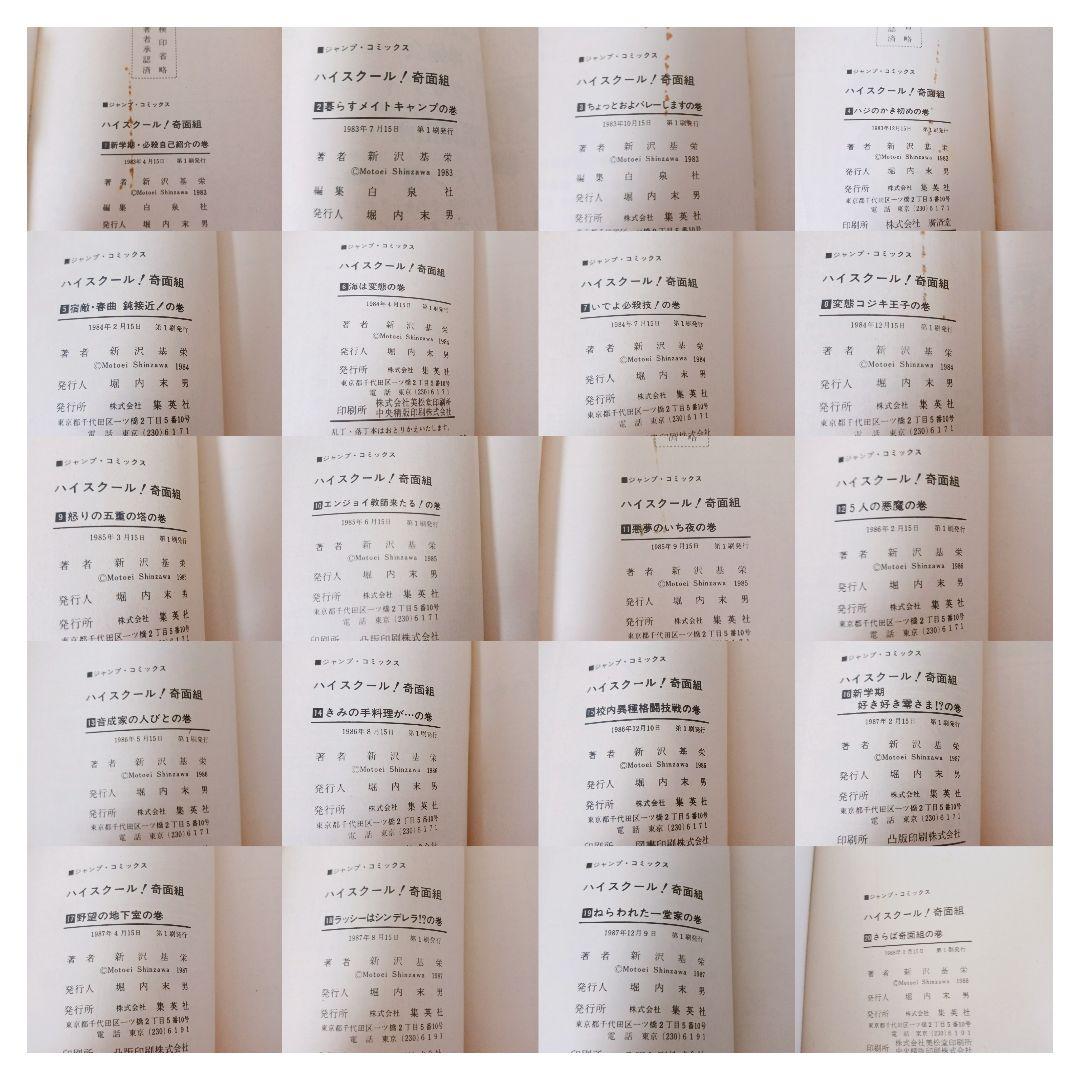 検印省略
著者承認済
■ジャンプ・コミックス
ハイスクール！奇面組
1新学期・必殺自己紹介の巻
1983年4月15日 第1刷発行
著者 新沢基栄
©Motoei Shinzawa 1983
編集 白泉社
発行人 堀内末男
■ジャンプ・コミックス
ハイスクール！奇面組
2暮らすメイトキャンプの巻
1983年7月15日 第1刷発行
著者 新沢基栄
©Motoei Shinzawa 1983
編集 白泉社
発行人 堀内末男
■ジャンプ・コミックス
ハイスクール！奇面組
3ちょっとおよバレーしますの巻
1983年10月15日 第1刷発行
著者 新沢基栄
©Motoei Shinzawa 1983
編集 白泉社
発行人 堀内末男
発行所 株式会社 集英社
■ジャンプ・コミックス
ハイスクール！奇面組
4ハジのかき初めの巻
1983年12月15日 第1刷発行
著者 新沢基栄
©Motoei Shinzawa 1983
発行人 堀内末男
発行所 株式会社 集英社
東京都千代田区一ツ橋2丁目5番10号
電話 東京(230)6171
印刷所 株式会社 廣済堂
■ジャンプ・コミックス
ハイスクール！奇面組
5宿敵・春曲 鈍接近！の巻
1984年2月15日 第1刷発行
著者 新沢基栄
©Motoei Shinzawa 1984
発行人 堀内末男
発行所 株式会社 集英社
東京都千代田区一ツ橋2丁目5番10号
電話 東京(230)6171
■ジャンプ・コミックス
ハイスクール！奇面組
6海は変態の巻
1984年4月15日 第1刷発行
著者 新沢基栄
©Motoei Shinzawa 1984
発行人 堀内末男
発行所 株式会社 集英社
東京都千代田区一ツ橋2丁目5番10号
電話 東京(230)6171
印刷所 株式会社美松堂印刷所
中央精版印刷株式会社
乱丁・落丁本はおとりかえいたします。
■ジャンプ・コミックス
ハイスクール！奇面組
7いでよ必殺技！の巻
1984年7月15日 第1刷発行
著者 新沢基栄
©Motoei Shinzawa 1984
発行人 堀内末男
発行所 株式会社 集英社
東京都千代田区一ツ橋2丁目5番10号
電話 東京(230)6171
■ジャンプ・コミックス
ハイスクール！奇面組
8変態コジキ王子の巻
1984年12月15日 第1刷発行
著者 新沢基栄
©Motoei Shinzawa 1984
発行人 堀内末男
発行所 株式会社 集英社
東京都千代田区一ツ橋2丁目5番10号
電話 東京(230)6171
■ジャンプ・コミックス
ハイスクール！奇面組
9怒りの五重の塔の巻
1985年3月15日 第1刷発行
著者 新沢基栄
©Motoei Shinzawa 1985
発行人 堀内末男
発行所 株式会社 集英社
東京都千代田区一ツ橋2丁目5番10号
電話 東京(230)6171
■ジャンプ・コミックス
ハイスクール！奇面組
10エンジョイ教師来たる！の巻
1985年6月15日 第1刷発行
著者 新沢基栄
©Motoei Shinzawa 1985
発行人 堀内末男
発行所 株式会社 集英社
東京都千代田区一ツ橋2丁目5番10号
電話 東京(230)6171
印刷所 凸版印刷株式会社
■ジャンプ・コミックス
ハイスクール！奇面組
11悪夢のいち夜の巻
1985年9月15日 第1刷発行
著者 新沢基栄
©Motoei Shinzawa 1985
発行人 堀内末男
発行所 株式会社 集英社
東京都千代田区一ツ橋2丁目5番10号
■ジャンプ・コミックス
ハイスクール！奇面組
12 5人の悪魔の巻
1986年2月15日 第1刷発行
著者 新沢基栄
©Motoei Shinzawa 1986
発行人 堀内末男
発行所 株式会社 集英社
東京都千代田区一ツ橋2丁目5番10号
電話 東京(230)6171
■ジャンプ・コミックス
ハイスクール！奇面組
13音成家の人びとの巻
1986年5月15日 第1刷発行
著者 新沢基栄
©Motoei Shinzawa 1986
発行人 堀内末男
発行所 株式会社 集英社
東京都千代田区一ツ橋2丁目5番10号
電話 東京(230)6171
■ジャンプ・コミックス
ハイスクール！奇面組
14きみの手料理が…の巻
1986年8月15日 第1刷発行
著者 新沢基栄
©Motoei Shinzawa 1986
発行人 堀内末男
発行所 株式会社 集英社
東京都千代田区一ツ橋2丁目5番10号
電話 東京(230)6171
■ジャンプ・コミックス
ハイスクール！奇面組
15校内異種格闘技戦の巻
1986年12月10日 第1刷発行
著者 新沢基栄
©Motoei Shinzawa 1986
発行人 堀内末男
発行所 株式会社 集英社
東京都千代田区一ツ橋2丁目5番10号
電話 東京(230)6171
印刷所 図書印刷株式会社
■ジャンプ・コミックス
ハイスクール！奇面組
16新学期
好き好き零さま!?の巻
1987年2月15日 第1刷発行
著者 新沢基栄
©Motoei Shinzawa 1987
発行人 堀内末男
発行所 株式会社 集英社
東京都千代田区一ツ橋2丁目5番10号
電話 東京(230)6171
印刷所 凸版印刷株式会社
■ジャンプ・コミックス
ハイスクール！奇面組
17野望の地下室の巻
1987年4月15日 第1刷発行
著者 新沢基栄
©Motoei Shinzawa 1987
発行人 堀内末男
発行所 株式会社 集英社
東京都千代田区一ツ橋2丁目5番10号
電話 東京(230)6191
印刷所 凸版印刷株式会社
■ジャンプ・コミックス
ハイスクール！奇面組
18ラッシーはシンデレラ!?の巻
1987年8月15日 第1刷発行
著者 新沢基栄
©Motoei Shinzawa 1987
発行人 堀内末男
発行所 株式会社 集英社
東京都千代田区一ツ橋2丁目5番10号
電話 東京(230)6191
■ジャンプ・コミックス
ハイスクール！奇面組
19ねらわれた一堂家の巻
1987年12月9日 第1刷発行
著者 新沢基栄
©Motoei Shinzawa 1987
発行人 堀内末男
発行所 株式会社 集英社
東京都千代田区一ツ橋2丁目5番10号
電話 東京(230)6191
■ジャンプ・コミックス
ハイスクール！奇面組
20さらば奇面組の巻
第1刷発行
著者 新沢基栄
©Motoei Shinzawa 1988
発行人 堀内末男
発行所 株式会社 集英社
東京都千代田区一ツ橋2丁目5番10号
電話 東京(230)6191
印刷所 株式会社美松堂印刷所
中央精版印刷株式会社